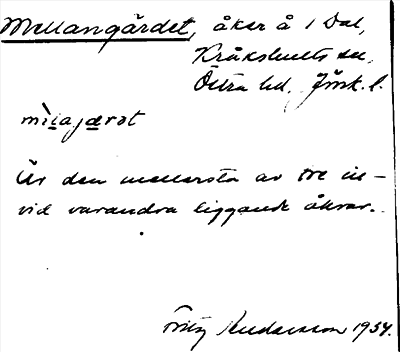 Mellangärdet, åker å 1 Dal,
Kråkshults sn,
Östra hd, Jönk. l.
mìlajærət
Är den mellersta av tre in-
vid varandra liggande åkrar.
Fritz Andersson 1934.